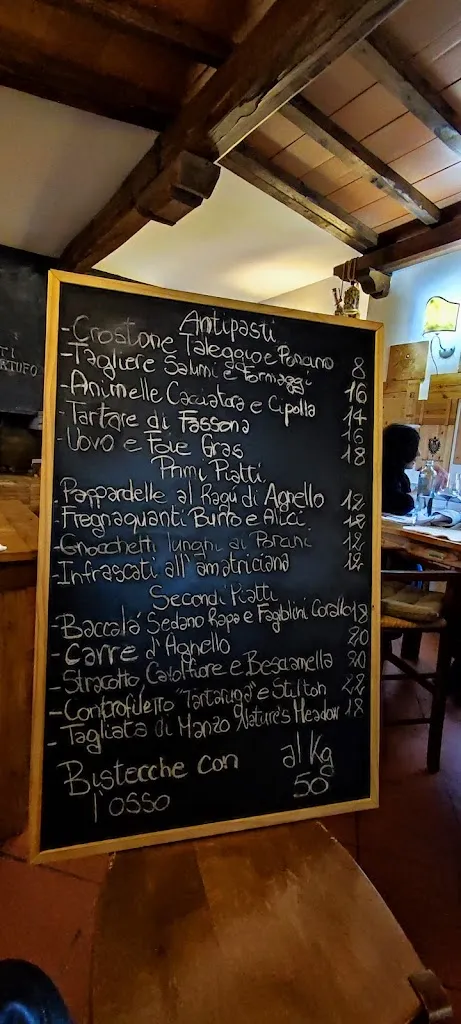 TI
ARTUFO
Antipasti
-Crostone Taleggio e Porcino 8
-Tagliere Salumi e Formaggi 16
-Animelle Cacciatora e Cipolla 14
-Tartare di Fassona 16
-Uovo e Foie Gras 18
Primi Piatti
-Pappardelle al Ragù di Agnello 12
-Fregnaquanti Burro e Alici 12
-Gnocchetti lunghi ai Porcini 12
-Infrascati all'amatriciana 12
Secondi Piatti
-Baccalà Sedano Rapa e Fagiolini Corallo 18
-Carrè d'Agnello 20
-Stracotto Cavolfiore e Besciamella 20
-Controfiletto "Tartaruga" e Stilton 22
-Tagliata di Manzo Nature's Meadow 18
Bistecche con al Kg
l'osso 50